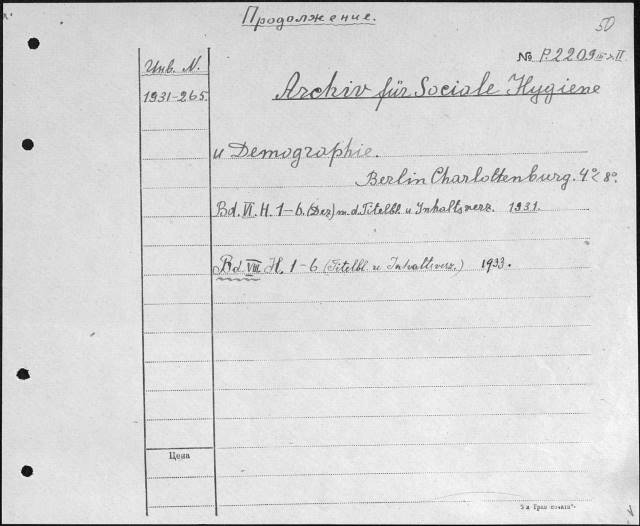 Продолжение.
50
Инв. N.
№ P.2209
1931-265.
Archiv für Sociale Hygiene
u Demographie.
Berlin Charlottenburg. 4° < 8°.
Bd. VI. H. 1-6. (Dez) m. d. Titelbl. u Inhaltsverz. 1931.
Bd. VIII H. 1-6 (Titelbl. u Inhaltsverz.) 1933.
Цена